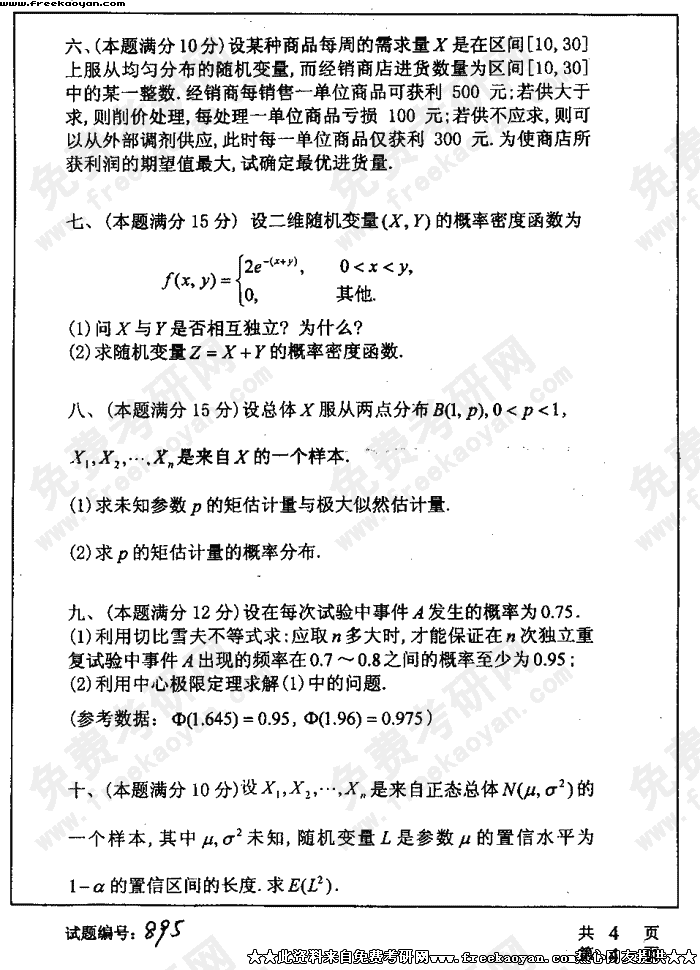 www.freekaoyan.com
六、(本题满分10分)设某种商品每周的需求量X是在区间[10,30]
上服从均匀分布的随机变量,而经销商店进货数量为区间[10,30]
中的某一整数.经销商每销售一单位商品可获利 500 元;若供大于
求,则削价处理,每处理一单位商品亏损 100 元;若供不应求,则可
以从外部调剂供应,此时每一单位商品仅获利 300 元.为使商店所
获利润的期望值最大,试确定最优进货量.
七、(本题满分15分) 设二维随机变量(X,Y)的概率密度函数为
f(x,y)={2e^{-(x+y)}, 0<x<y,
0, 其他.
(1)问X与Y是否相互独立? 为什么?
(2)求随机变量Z=X+Y的概率密度函数.
八、(本题满分15分)设总体X服从两点分布B(1,p),0<p<1,
X₁,X₂,⋯,Xₙ是来自X的一个样本.
(1)求未知参数p的矩估计量与极大似然估计量.
(2)求p的矩估计量的概率分布.
九、(本题满分12分)设在每次试验中事件A发生的概率为0.75.
(1)利用切比雪夫不等式求:应取n多大时,才能保证在n次独立重
复试验中事件A出现的频率在0.7~0.8之间的概率至少为0.95;
(2)利用中心极限定理求解(1)中的问题.
(参考数据: Φ(1.645)=0.95, Φ(1.96)=0.975)
十、(本题满分10分)设X₁,X₂,⋯,Xₙ是来自正态总体N(μ,σ²)的
一个样本,其中μ,σ²未知,随机变量L是参数μ的置信水平为
1-α的置信区间的长度.求E(L²).
试题编号: 895
共 4 页
第 4 页
★★此资料来自免费考研网www.freekaoyan.com热心网友提供★★
免费考研网
www.freekaoyan.com